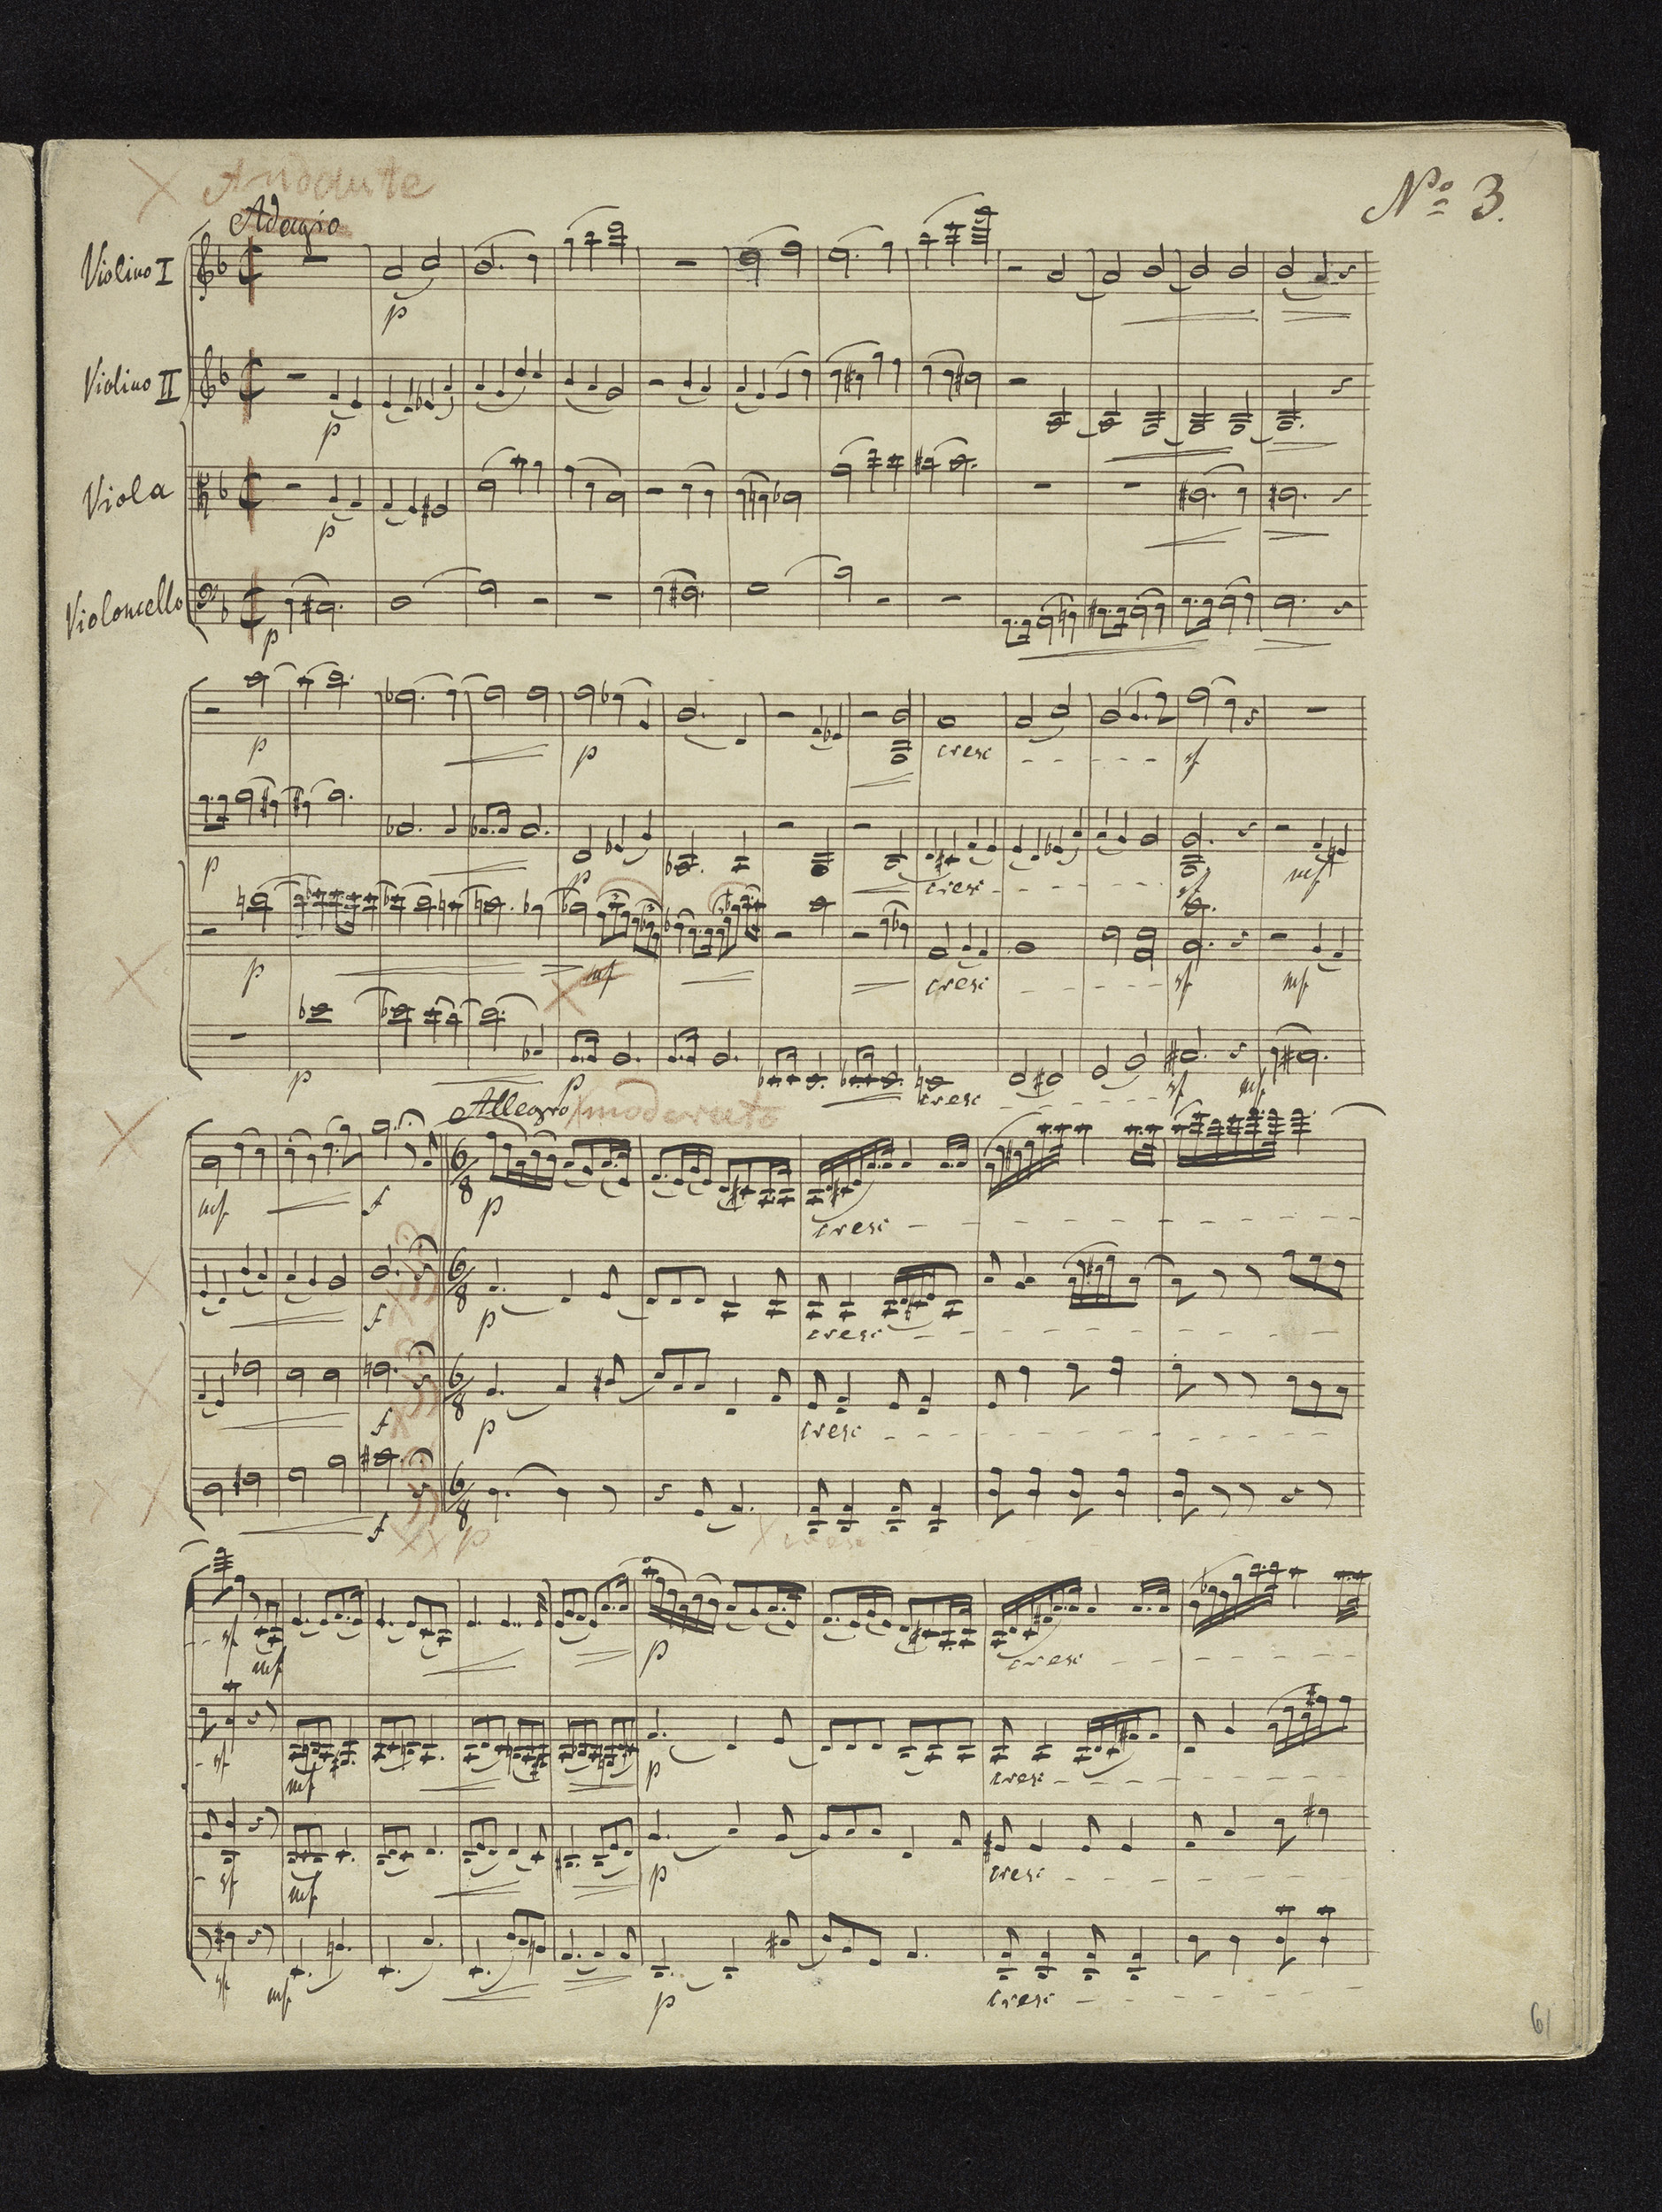 Andante
Adagio
No. 3.
Violino I
p
Violino II
p
Viola
p
Violoncello
p
p p cresc sf
p p cresc sf mf
p mf cresc sf mf
p p cresc sf mf
Allegro moderato
mf f 6/8 p cresc
f 6/8 p cresc
f 6/8 p cresc
f 6/8 p cresc
sf mf p cresc
sf mf p cresc
sf mf p cresc
sf mf p cresc
61